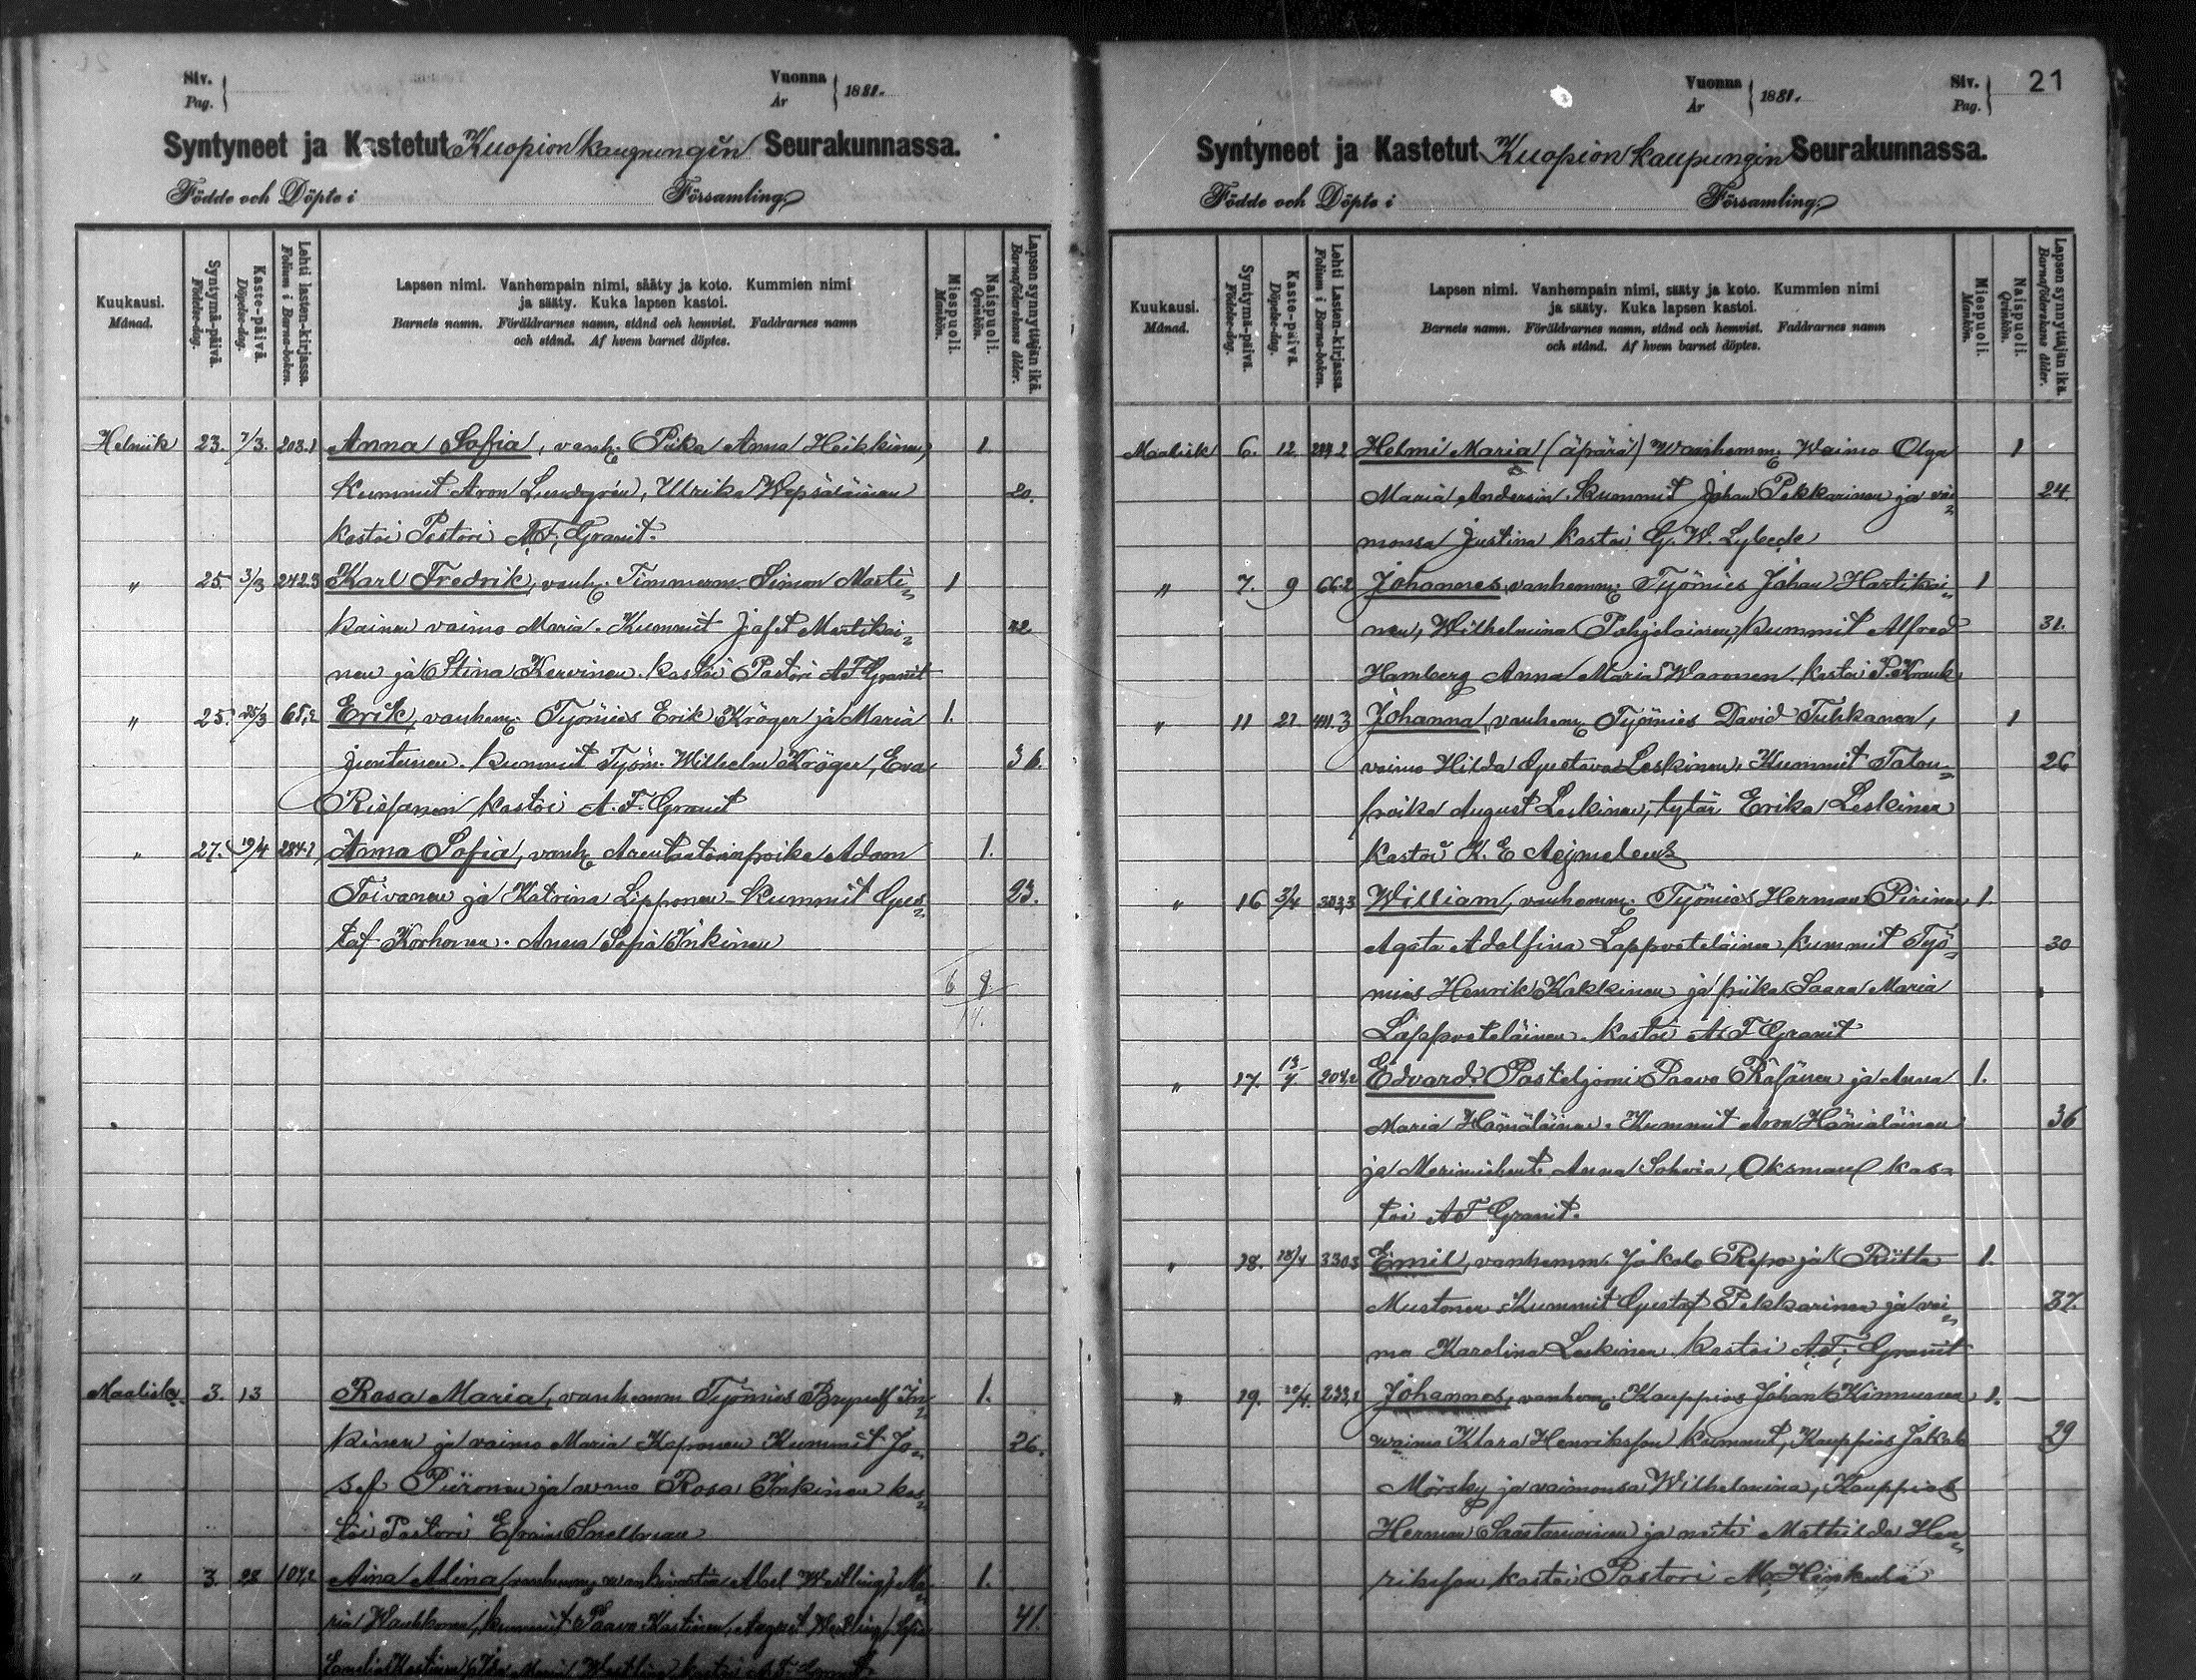 Siv.
Pag.
Vuonna
År
1881.
Syntyneet ja Kastetut Kuopion kaupungin Seurakunnassa.
Födde och Döpte i Församling
Kuukausi.
Månad.
Syntymä-päivä.
Födelse-dag.
Kaste-päivä.
Döpelse-dag.
Lehti lasten-kirjassa.
Folium i Barna-boken.
Lapsen nimi. Vanhempain nimi, sääty ja koto. Kummien nimi
ja sääty. Kuka lapsen kastoi.
Barnets namn. Föräldrarnes namn, stånd och hemvist. Faddrarnes namn
och stånd. Af hvem barnet döptes.
Miespuoli.
Mankön.
Naispuoli.
Qvinkön.
Lapsen synnyttäjän ikä.
Barnaföderskans ålder.
Helmik 23. 7/3. 203.1 Anna Sofia, vanh. Piika Anna Heikkinen, 1.
Kummit Aron Lundgrén, Ulrika Wepsäläinen 20.
kastoi Pastori A.F. Granit.
" 25. 3/3 242.3 Karl Fredrik, vanh. Timmerm. Simon Marti= 1
kainen vaimo Maria. Kummit Jafet Martikai= 32
nen ja Stina Kervinen. kastoi Pastori A F Granit
" 25. 25/3 65,2 Erik, vanhem. Työmies Erik Kröger ja Maria 1.
Juntunen. Kummit Työm. Wilhelm Kröger, Eva 36.
Risfanen kastoi A. F. Granit
" 27. 19/4 284.1 Anna Sofia, vanh. Arentaatorinpoika Adam 1.
Toivanen ja Katrina Lipponen - Kummit Gus= 23.
taf Korhonen. Anna Sofia Inkinen
6 8
14.
Maalisk. 3. 13 Rosa Maria, vanhemm Työmies Brynolf In= 1.
kinen ja vaimo Maria Koponen Kummit Jo= 26.
sef Piironen ja vmo Rosa Inkinen kas=
toi Pastori Efraim Snellman
" 3. 28 104,2 Aina Alina vanhemm. Abel Westling, Ma= 1.
ria kummit Paavo Kastinen, August Westling, Sofia 41.
Emelie Kastinen, Maria Westling kastoi A. F. Granit.
Vuonna
År
1881.
Siv.
Pag.
21
Syntyneet ja Kastetut Kuopion kaupungin Seurakunnassa.
Födde och Döpte i Församling
Kuukausi.
Månad.
Syntymä-päivä.
Födelse-dag.
Kaste-päivä.
Döpelse-dag.
Lehti Lasten-kirjassa.
Folium i Barna-boken.
Lapsen nimi. Vanhempain nimi, sääty ja koto. Kummien nimi
ja sääty. Kuka lapsen kastoi.
Barnets namn. Föräldrarnes namn, stånd och hemvist. Faddrarnes namn
och stånd. Af hvem barnet döptes.
Miespuoli.
Mankön.
Naispuoli.
Qvinkön.
Lapsen synnyttäjän ikä.
Barnaföderskans ålder.
Maalisk 6. 12 Helmi Maria (äpärä) Wanhemm. Waimo Olga 1
Maria Andersin. Kummit Johan Pekkarinen ja vai= 24.
monsa Justina kastoi G. W. Lybeck
" 7. 9 66.2 Johannes, vanhemm. Työmies Johan Hartikai= 1
nen, Wilhelmina Pohjolainen, kummit Alfred 31.
Hamberg Anna Maria Waronen. kastoi P. Krank
" 11 21. 3 Johanna, vanhem. Työmies David Tuhkanen, 1
vaimo Hilda Gustava Leskinen, Kummit Talon=  26
poika August Leskinen, tytär Erika Leskinen
Kastoi K. E Aejmeleus
" 16 3/4 303,3 William, vanhemm. Työmies Herman Pirinen 1.
Agata Adolfina Lappveteläinen kummit Työ= 30
mies Henrik Kakkinen ja piika Saara Maria
Lappveteläinen. kastoi A F Granit
" 17. 13/4 204,2 Edvard. Pasteljomi Paavo Räsänen ja Anna 1.
Maria Hämäläinen. Kummit Aron Hämäläinen 36
ja Anna Sohvia Oksman kas=
toi A F Granit.
" 18. 18/4 330.3 Emil, vanhemm. Jakob Repo ja Riitta 1.
Mustonen Kummit Gustaf Pekkarinen ja vai= 37.
mo Karolina Leskinen kastoi A. F. Granit
" 19. 20/4. 233,1 Johannes, vanhem. Kauppias Johan Kinnunen 1.
waimo Klara Henriksson kummit, Kauppias Jakob 29
Mörsky ja vaimonsa Wilhelmina, Kauppias
Herman Saastamoinen ja neiti Mathilda Hen=
riksson kastoi Pastori M. Hinkula